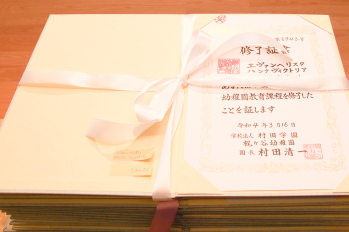 修了証書
エヴァンヘリスタ
ハンナヴィクトリア
幼稚園教育課程を修了した
ことを証します
令和4年3月16日
学校法人 村田学園
梶ヶ谷幼稚園
園長 村田清一